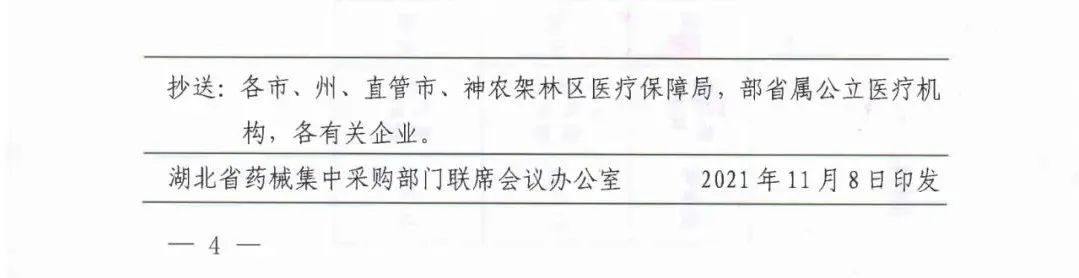 抄送：各市、州、直管市、神农架林区医疗保障局，部省属公立医疗机
构，各有关企业。
湖北省药械集中采购部门联席会议办公室 2021年11月8日印发
— 4 —